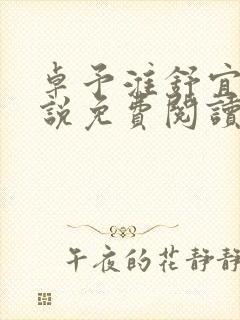 卓予淮舒宜
說免費閱讀
午夜的花靜靜